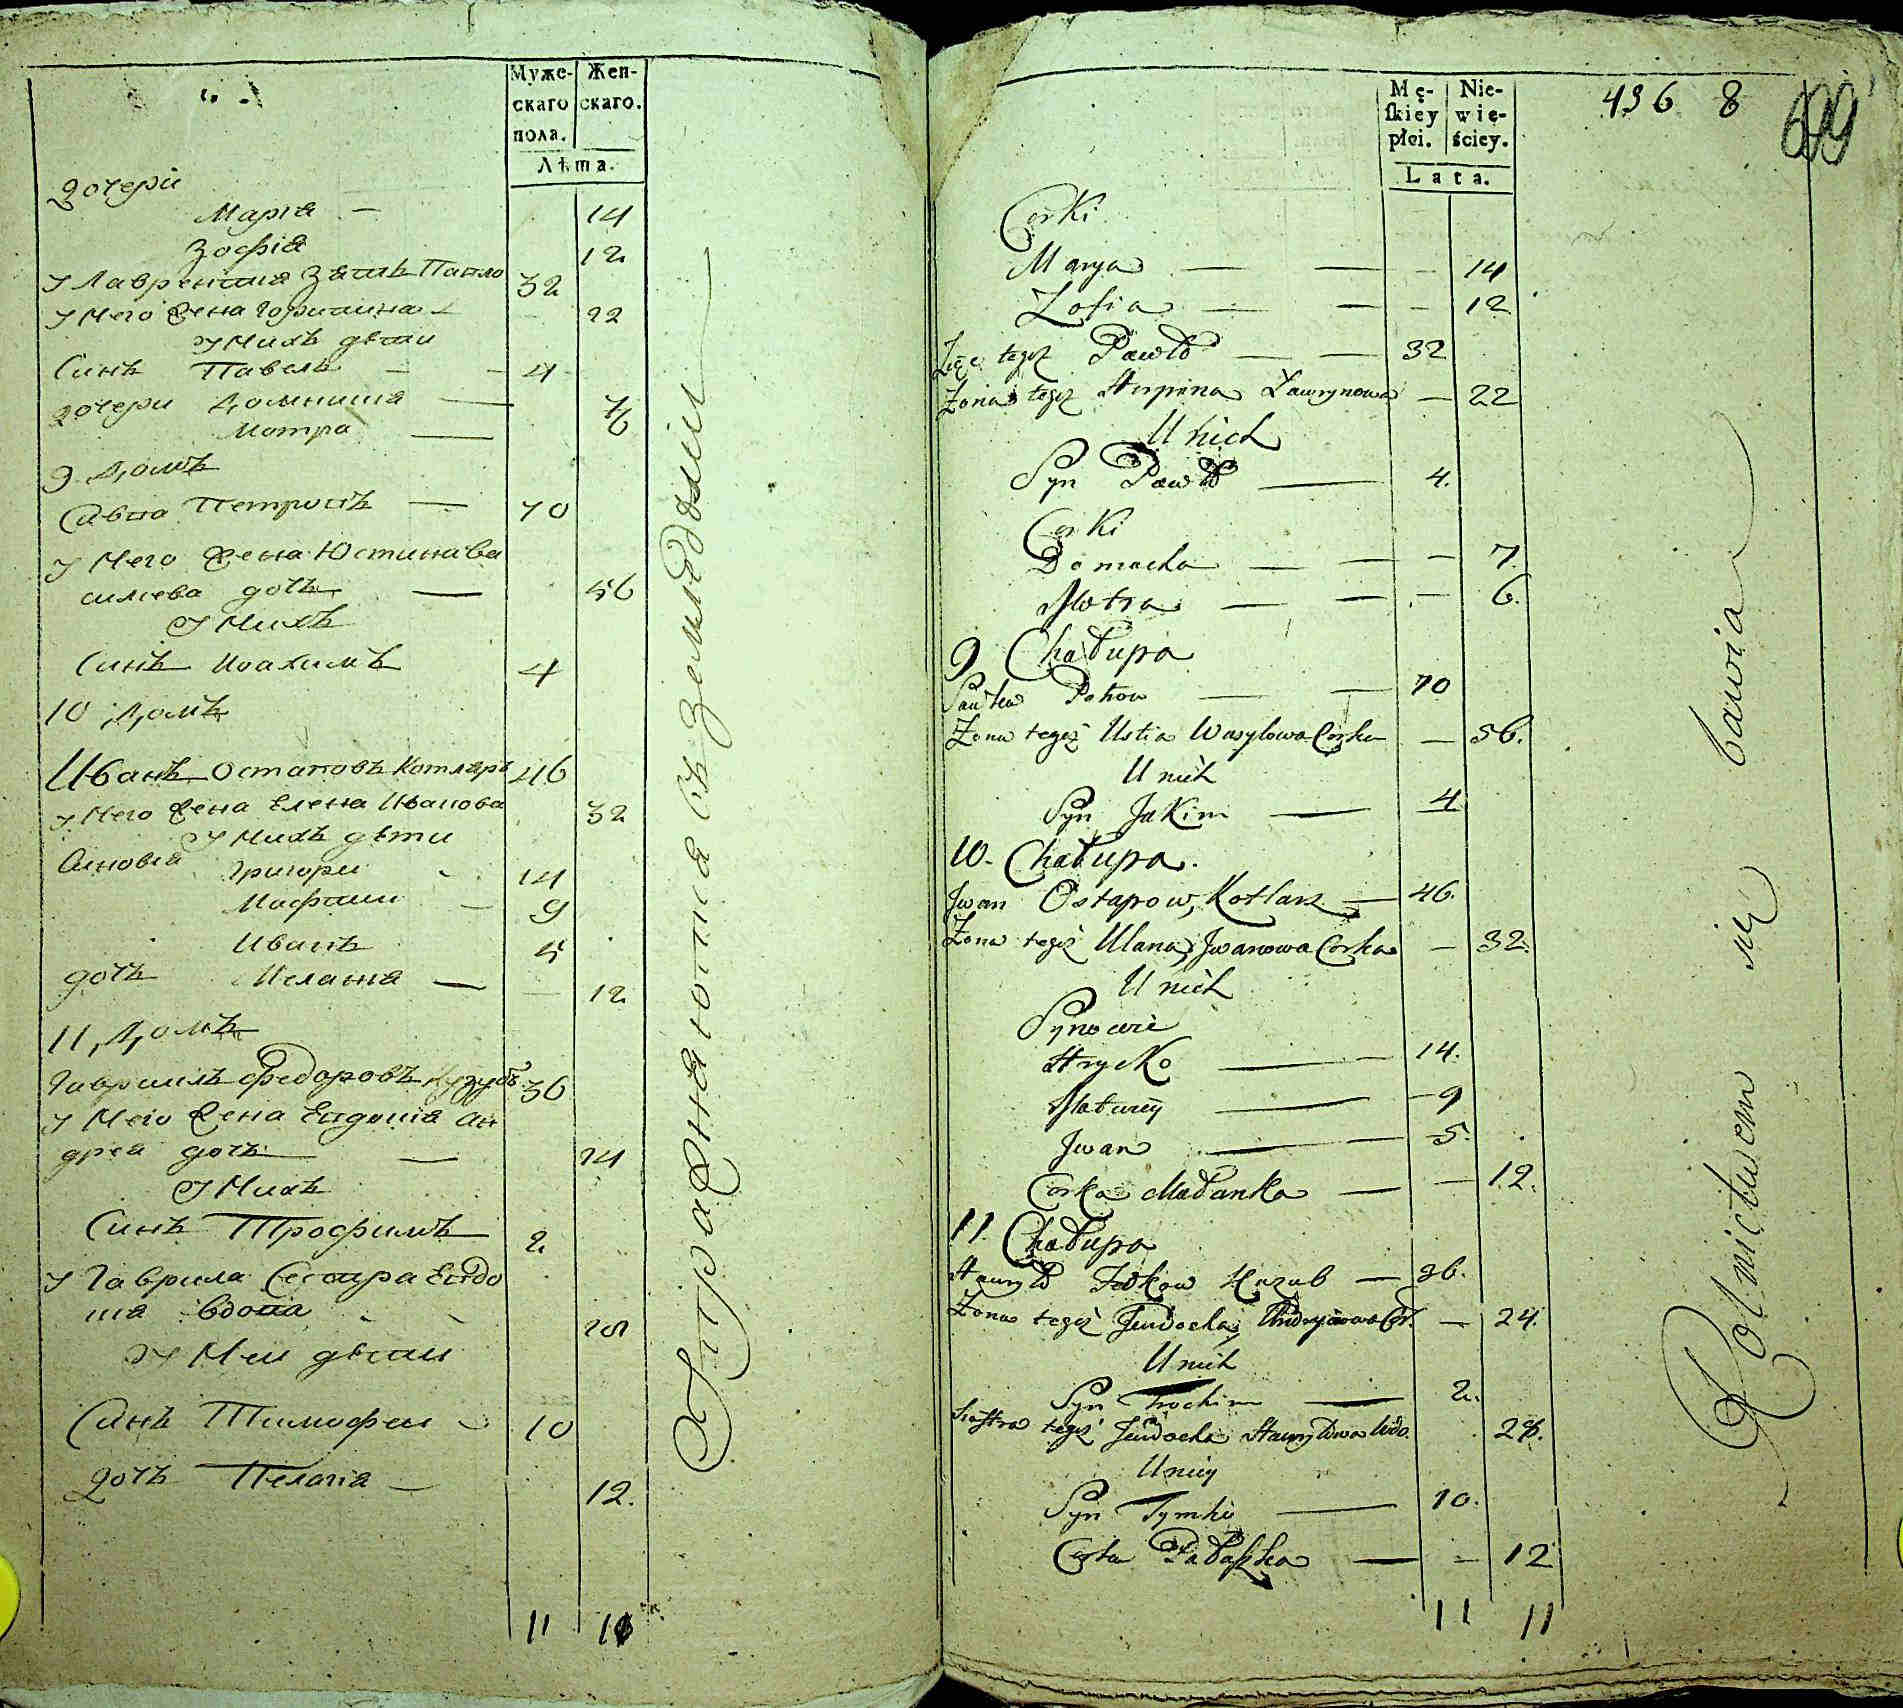 Муже-
скаго
пола.
Жен-
скаго.
Лѣта.
дочери
Марія — 14
Зофія 12
У Лаврентия Зять Павло 32
У него жена Горпина — 22
У нихъ дѣти
Синъ Павелъ — 4
дочери Домниция — 7
Мотра — 6
9 Домъ
Савва Петровъ — 70
У него жена Юстина Ва
силиева дочь — 56
У нихъ
Синъ Иоахимъ 4
10 Домъ
Иванъ Остаповъ Котляръ 46
У него жена Елена Иванова 32
У нихъ дѣти
Синовья Григори 14
Мафтеи — 9
Иванъ 5
дочь Мелания — 12
11 Домъ
Гавриилъ Федоровъ 36
У него жена Евдокия Ан
дрея дочь — 24
У нихъ
Синъ Трофимъ 2
У Гаврила Сестра Евдо
кия вдова 28
У неи дѣти
Синъ Тимофеи — 10
дочь Пелагия — 12.
11 11
Упражняются въ Земледелии
Mę-
skiey
płci.
Nie-
wie-
ściey.
Lata.
436 8
699
Corki
Marya — — — 14
Zofia — — — 12
Zięc tegoż Pawło — — 32
Zona tegoż Hurpina Ławrynowa — 22
U nich
Syn Pawło — 4.
Corki
Domacha — — — 7.
Motra — — — 6.
9 Chałupa
Sawka Petrow — — 70
Zona tegoż Ustia Wasylowa Corka — 56.
U nich
Syn Jakim — 4
10. Chałupa.
Jwan Ostapow, Kotlarz — 46.
Zona tegoż Ulana, Jwanowa Corka — 32.
U nich
Synowie
Hrycko — 14.
Matwiy — 9
Jwan — 5.
Corka Małanka — — 12.
11. Chałupa
Hawryło Fedkow — 36.
Zona tegoż Jewdocha, Andryiowa Cor. — 24.
U nich
Syn Trochim — 2.
Siostra tegoż Jewdocha Hawryłowa Wdo. 28.
U niey
Syn Tymko — 10.
Corka Pałaszka — — 12
11 11
Rolnictwem się bawia